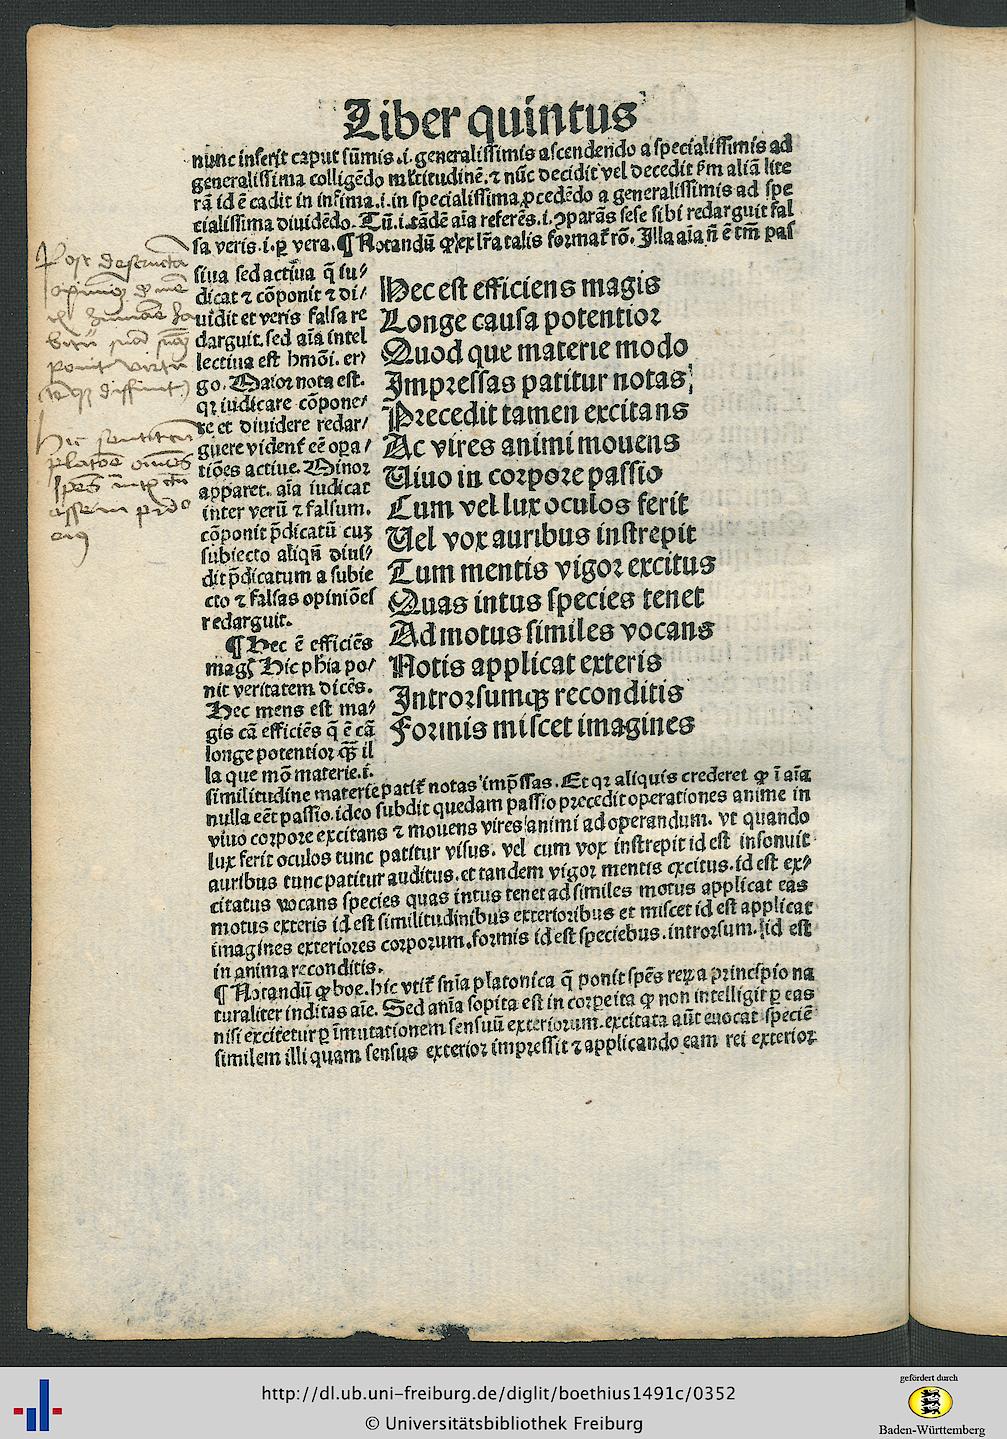 Liber quintus
nunc inserit caput sũmis .i. generalissimis ascendendo a specialissimis ad
generalissima colligẽdo multitudinẽ. ⁊ nũc decidit vel decedit ẜm aliã lite
rã id ẽ cadit in infima .i. in specialissima ꝓcedẽdo a generalissimis ad spe
cialissima diuidẽdo. Tũ .i. tãdẽ aĩa referẽs .i. ꝯparãs sese sibi redarguit fal
sa veris .i. ꝑ vera. ¶ Notandũ ꝙ ex lr̃a talis format̃ rõ. Illa aĩa nõ ẽ tm̃ pas
siua sed actiua q̃ iu⸗
dicat ⁊ cõponit ⁊ di⸗
uidit et veris falsa re
darguit. sed aĩa intel
lectiua est hmõi. er⸗
go. Maior nota est.
qꝛ iudicare cõpone⸗
re et diuidere redar⸗
guere vident̃ eẽ oꝑa⸗
tiões actiue. Minor
apparet. aĩa iudicat
inter verũ ⁊ falsum.
cõponit p̃dicatũ cuꝫ
subiecto aliqñ diui⸗
dit p̃dicatum a subie
cto ⁊ falsas opiniões
redarguit.
¶ Hec ẽ efficiẽs
magꝭ Hic phĩa po⸗
nit veritatem dicẽs.
Hec mens est ma⸗
gis cã efficiẽs q̃ ẽ cã
longe potentior qꝫ̃ il
la que mõ materie .i.
Hec est efficiens magis
Longe causa potentior
Quod que materie modo
Impressas patitur notas
Precedit tamen excitans
Ac vires animi mouens
Uiuo in corpore passio
Cum vel lux oculos ferit
Uel vox auribus instrepit
Tum mentis vigor excitus
Quas intus species tenet
Ad motus similes vocans
Notis applicat exteris
Introrsumqꝫ reconditis
Formis miscet imagines
similitudine materie patit̃ notas imp̃ssas. Et qꝛ aliquis crederet ꝙ ĩ aĩa
nulla eẽt passio. ideo subdit quedam passio precedit operationes anime in
viuo corpore excitans ⁊ mouens vires animi ad operandum. vt quando
lux ferit oculos tunc patitur visus. vel cum vox instrepit id est insonuit
auribus tunc patitur auditus. et tandem vigor mentis excitus. id est ex⸗
citatus vocans species quas intus tenet ad similes motus applicat eas
motus exteris id est similitudinibus exterioribus et miscet id est applicat
imagines exteriores corporum. formis id est speciebus. introrsum. id est
in anima reconditis.
¶ Notandũ ꝙ boe. hic vtit̃ sñia platonica q̃ ponit spẽs reꝝ a principio na
turaliter inditas aĩe. Sed anĩa sopita est in corꝑe ita ꝙ non intelligit ꝑ eas
nisi excitetur ꝑ ĩmutationem sensuũ exteriorum. excitata aũt euocat speciẽ
similem illi quam sensus exterior impressit ⁊ applicando eam rei exterior
http://dl.ub.uni-freiburg.de/diglit/boethius1491c/0352
© Universitätsbibliothek Freiburg
gefördert durch
Baden-Württemberg